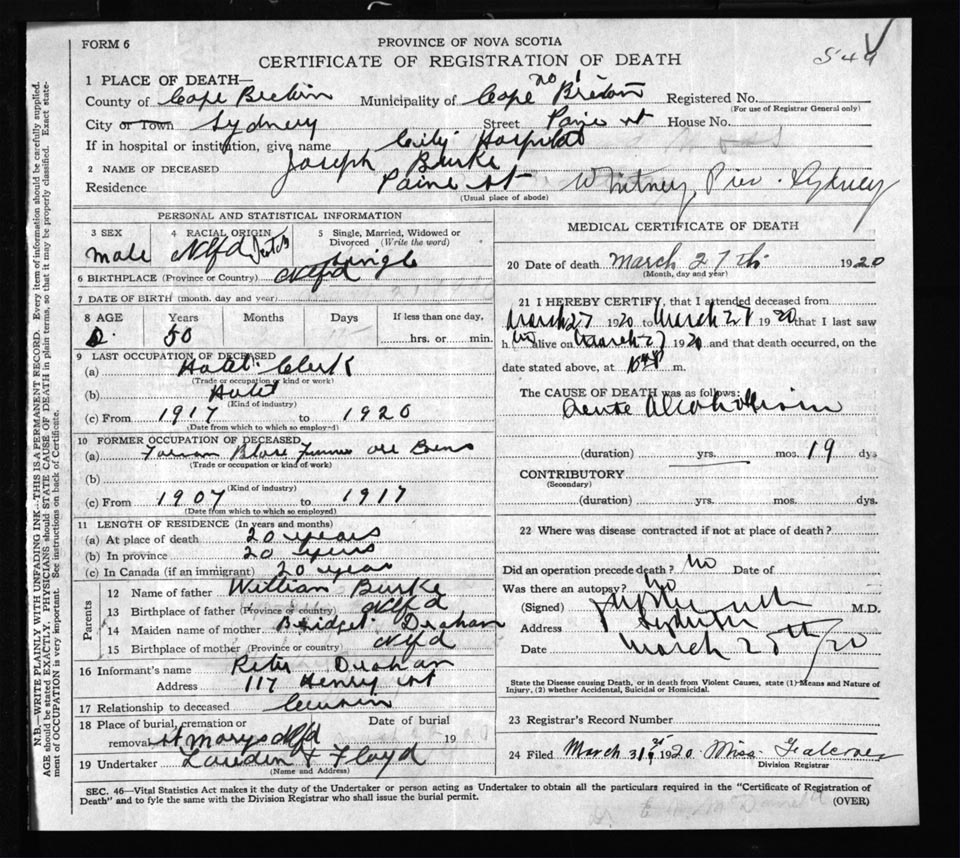 FORM 6
PROVINCE OF NOVA SCOTIA
544
CERTIFICATE OF REGISTRATION OF DEATH
1 PLACE OF DEATH—
County of Cape Breton Municipality of Cape Breton no 1 Registered No.
(For use of Registrar General only)
City or Town Sydney Street Paine st House No.
If in hospital or institution, give name City Hospital
2 NAME OF DECEASED Joseph Burke
Residence Paine st Whitney Pier. Sydney
(Usual place of abode)
PERSONAL AND STATISTICAL INFORMATION
3 SEX 4 RACIAL ORIGIN 5 Single, Married, Widowed or Divorced (Write the word)
male Nfld Single
6 BIRTHPLACE (Province or Country) Nfld
7 DATE OF BIRTH (month, day and year)
8 AGE Years Months Days If less than one day,
50 hrs. or min.
9 LAST OCCUPATION OF DECEASED
(a) Hotel Clerk
(Trade or occupation or kind or work)
(b) Hotel
(Kind of industry)
(c) From 1917 to 1920
(Date from which to which so employed)
10 FORMER OCCUPATION OF DECEASED
(a) Forman
(Trade or occupation or kind of work)
(b)
(Kind of industry)
(c) From 1907 to 1917
(Date from which to which so employed)
11 LENGTH OF RESIDENCE (In years and months)
(a) At place of death 20 years
(b) In province 20 years
(c) In Canada (if an immigrant) 20 year
Parents
12 Name of father William Burke
13 Birthplace of father (Province or country) Nfld
14 Maiden name of mother Bridget
15 Birthplace of mother (Province or country) Nfld
16 Informant's name
Address 117 Henry st
17 Relationship to deceased Cousin
18 Place of burial, cremation or removal St Marys Nfld Date of burial 19
19 Undertaker & Floyd
(Name and Address)
MEDICAL CERTIFICATE OF DEATH
20 Date of death March 27th 1920
(Month, day and year)
21 I HEREBY CERTIFY, that I attended deceased from
March 27 1920 to March 28 1920 that I last saw
him alive on March 27 1920 and that death occurred, on the
date stated above, at m.
The CAUSE OF DEATH was as follows:
Acute Alcoholism
(duration) yrs. mos. 19 dys
CONTRIBUTORY
(Secondary)
(duration) yrs. mos. dys.
22 Where was disease contracted if not at place of death?
Did an operation precede death? No Date of
Was there an autopsy? No
(Signed) M.D.
Address Sydney
Date March 28th/20
State the Disease causing Death, or in death from Violent Causes, state (1) Means and Nature of
Injury, (2) whether Accidental, Suicidal or Homicidal.
23 Registrar's Record Number
24 Filed March 31st 1920 Miss. Falconer
Division Registrar
SEC. 46—Vital Statistics Act makes it the duty of the Undertaker or person acting as Undertaker to obtain all the particulars required in the "Certificate of Registration of
Death" and to fyle the same with the Division Registrar who shall issue the burial permit.
(OVER)
N.B.—WRITE PLAINLY WITH UNFADING INK—THIS IS A PERMANENT RECORD. Every item of information should be carefully supplied.
AGE should be stated EXACTLY. PHYSICIANS should STATE CAUSE OF DEATH in plain terms, so that it may be properly classified. Exact state-
ment of OCCUPATION is very important. See instructions on back of Certificate.